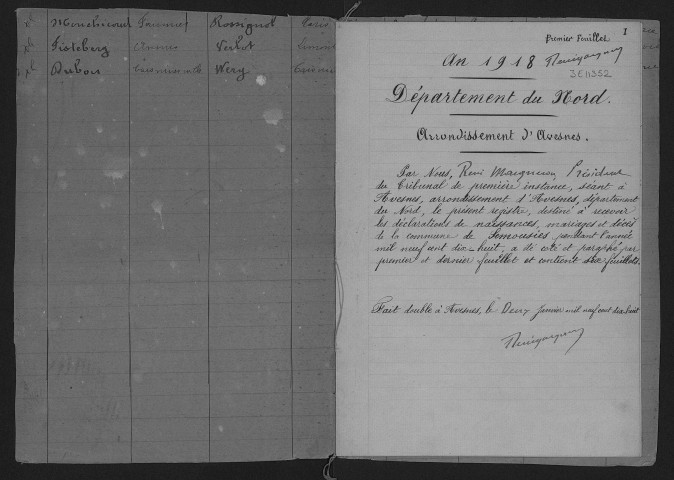 Monchicourt Rossignol Paris
Fisteberg Verlot
Dubois Wery
Premier Feuillet 1
An 1918
3E11352
Département du Nord.
Arrondissement d'Avesnes.
Par Nous, René Président
du Tribunal de première instance, séant à
Avesnes, arrondissement d'Avesnes, département
du Nord, le présent registre, destiné à recevoir
les déclarations de naissances, mariages et décès
de la commune de Semousies, pendant l'année
mil neuf cent dix-huit, a été coté et paraphé par
premier et dernier feuillet et contient six feuillets.
Fait double à Avesnes, le Deux Janvier mil neuf cent dix huit